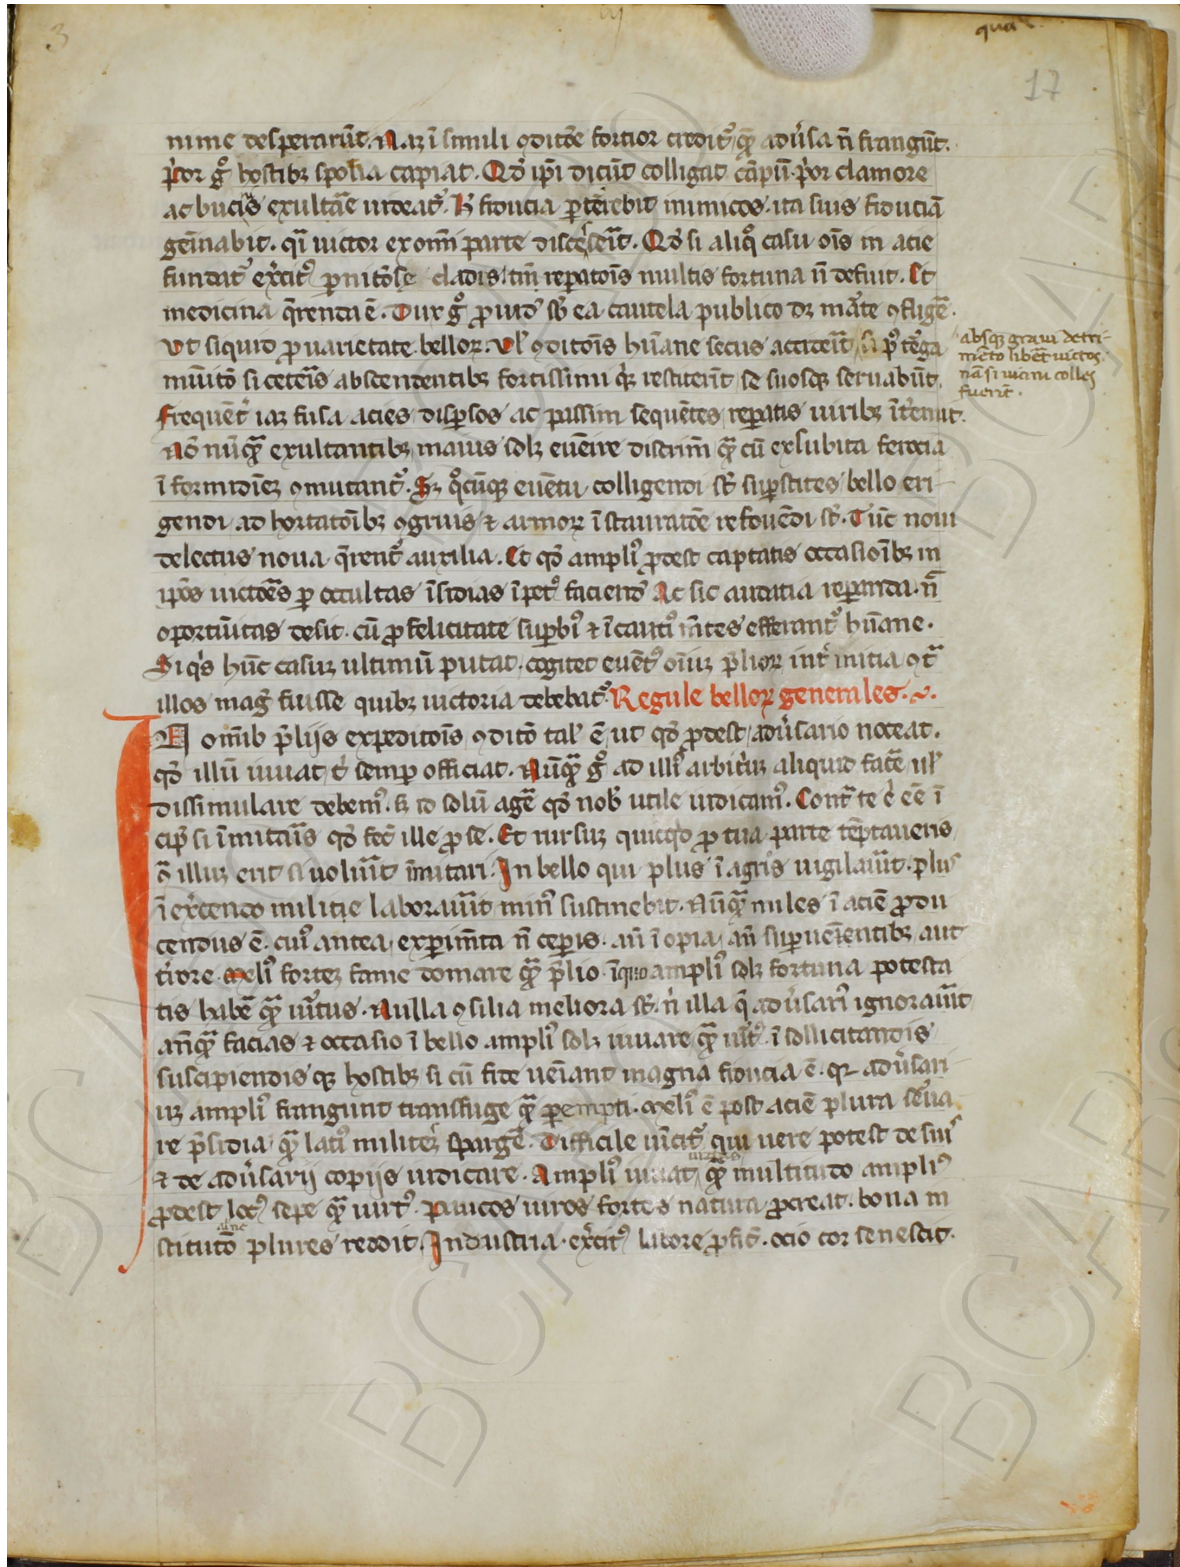 3
17
nime desperarūt. Naʒ ī simili ꝯditōe fortior credit᷑ quē adũsa n̄ frangūt.
p̓or gͦ hostibꝫ spolia capiat. Qd̓ ip̄i dicūt colligat cāpū. p̓or clamore
ac bucis exultāe uideat᷑. H̓ fiducia ꝑterebit inimicos. ita suis fiduciā
gem̄abit. q̄i uictor ex om̄i parte disceseīt. Qd̓ si aliqͦ casu oīs in acie
fundat᷑ exc̓it᷒ ꝑnitōse cladis. tn̄ reꝑatōis multis fortuna n̄ defuit. Et
medicina q̄renda ē. Dux gͦ ꝓuid᷒ sb̓ ea cautela publico dꝫ mār̄te ꝯfligē.
Ut siquid ꝓ uarietate belloꝝ. Ul̓ ꝯditōis hūane secus acciderīt
absqꝫ graui detri-
mēto libēt uictos.
nā si uicini colles
fuerīt.
mūitō si ceteīs abscendentibꝫ fortissimi q̓qꝫ restiterīt se suosqꝫ seruabūt.
Frequēt᷑ iaʒ fusa acies disꝑsos ac passim sequētes reꝑatis uiribꝫ īt̓emit.
Nō nūqᷓ exultantibꝫ maius solꝫ euēire discrim̄ qᷓ cū ex subita ferocia
ī formidīeʒ ꝯmutant᷑. Sʒ qͦcūqꝫ euētu colligendi st̄ suꝑstites bello eri-
gendi ad hortatōibꝫ ꝯgruis ⁊ armoꝝ ī stauratōe refouēdi st̄. Tūc noui
delectus noua q̄rent᷑ auxilia. Et qd̓ ampli᷒ ꝓdest captatis occasiōibꝫ in
ip̄os uictoēs ꝑ occultas īsidias īpet᷒ faciend᷒ Ac sic audatia reꝑanda. n̄
oportūitas desit. cū ꝓ felicitate suꝑbi᷒ ⁊ īcauti᷒ m̄tes efferant᷑ hūane.
Siq̓s hūc casuʒ ultimū putat. cogitet euēt᷒ oīuʒ p̄lioꝝ int᷑ initia ꝯtᷓ
illos mag̓ fuisse quibꝫ uictoria debebat᷑. Regule belloꝝ generales.
IN om̄ib p̄lijs expeditōis ꝯditō tal̓ ē ut qd̓ ꝓdest adũsario noceat.
qd̓ illū iuuat t̓ semꝑ officiat. Nūqᷓ gͦ ad illi᷒ arbit̓uʒ aliquid facē ul̓
dissimulare debem᷒. s̓ id solū agē qd̓ nob̓ utile iudicam᷒. Contᷓ te .n. eē ī
cip̓ si īmitaīs qd̓ fec̓ ille ꝓ se. Et rursuʒ quicqd̓ ꝓ tua parte tēptaueris
ᷓ illuʒ erit si uoluīt īmitari. In bello qui plus ī agris uigilauīt. plus
ī exc̓endo militie laborauīt min᷒ sustinebit. Nūqᷓ miles ī aciē ꝓdu
cendus ē. cui᷒ antea experim̄ta n̄ ceꝑis. aū īopia. aū suꝑuēīentibꝫ aut
t̓rore meli᷒ hosteʒ fame domare qᷓ p̄lio. īquo ampli᷒ solꝫ fortuna potesta
tis habē qᷓ uīrtus. Nulla ꝯsilia meliora st̄. n̓ illa q̄ adũsari᷒ ignorauīt
an̄qᷓ facias ⁊ occasio ī bello ampli᷒ solꝫ iuuare qᷓ uīt᷒. ī sollicitandis
suscipiendisqꝫ hostibꝫ si cū fide uēīant magna fiducia ē. qꝛ adũsari
uʒ ampli᷒ frangunt transfuge qᷓ ꝑempti. Meli᷒ ē post aciē plura sēua
re p̄sidia qᷓ lati᷒ milites spargē. Difficile uīcit᷑ qui uere potest de suis
⁊ de adũsarij copijs iudicare. Ampli᷒ iuuat uirtus qᷓ multitudo ampli᷒
ꝓdest loc᷒ sepe qᷓ uirt᷒. Paucos uiros fortes natura ꝓcreat. bona in
stitutō plures reddit Industria. exc̓it᷒ labore ꝓfic̓. ocio cor senescit.